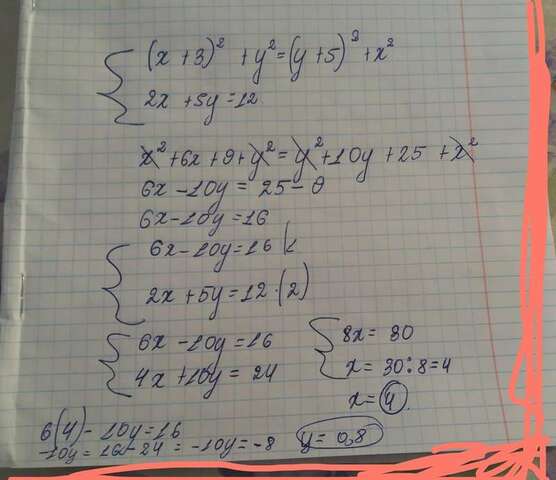 (x + 3)² + y² = (y + 5)² + x²
2x + 5y = 12
x² + 6x + 9 + y² = y² + 10y + 25 + x²
6x - 10y = 25 - 9
6x - 10y = 16
6x - 10y = 16
2x + 5y = 12 · (2)
6x - 10y = 16
4x + 10y = 24
8x = 80
x = 30 : 8 = 4
x = 4
6(4) - 10y = 16
-10y = 16 - 24 = -10y = -8
y = 0,8